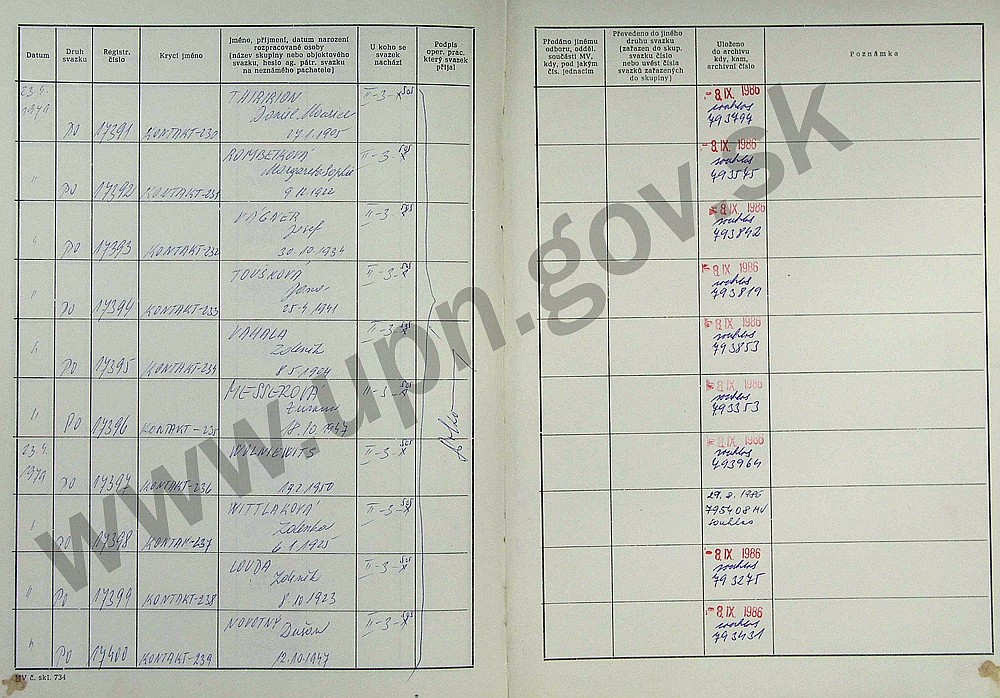 Datum
Druh svazku
Registr. číslo
Krycí jméno
Jméno, příjmení, datum narození
rozpracované osoby
(název skupiny nebo objektového
svazku, heslo ag. pátr. svazku
na neznámého pachatele)
U koho se
svazek
nachází
Podpis
oper. prac.
který svazek
přijal
Předáno jinému
odboru, odděl.
součásti MV,
kdy, pod jakým
čís. jednacím
Převedeno do jiného
druhu svazku
(zařazen do skup.
svazku číslo
nebo uvést čísla
svazků zařazených
do skupiny)
Uloženo
do archivu
kdy, kam,
archivní číslo
Poznámka
1979 PO 17391 KONTAKT-230 THIRIRION
27.1.1905 II-3-
-8.IX.1986
souhlas
793794
" PO 17392 KONTAKT-231
9.12.1922 II-3-
-8.IX.1986
souhlas
793545
" PO 17393 KONTAKT-232 VÁGNER
Josef
30.10.1934 II-3-
-8.IX.1986
souhlas
793842
" PO 17394 KONTAKT-233 TOUŠKOVÁ
25.4.1941 II-3-
-8.IX.1986
souhlas
793819
" PO 17395 KONTAKT-234 VAHALA
Zdeněk
8.5.1904 II-3-
-8.IX.1986
souhlas
793853
" PO 17396 KONTAKT-235 MESSEROVÁ
Zuzana
18.10.1947 II-3-
-8.IX.1986
souhlas
793353
23.4.
1979 PO 17397 KONTAKT-236
II-3-
-8.IX.1986
souhlas
793964
" PO 17398 KONTAKT-237 WITTLAKOVÁ
Zdenka
6.1.1925 II-3-
29.8.1986
795408 MV
souhlas
" PO 17399 KONTAKT-238 LOUDA
Zdeněk
8.10.1923 II-3-
-8.IX.1986
souhlas
793275
" PO 17400 KONTAKT-239 NOVOTNÝ
Dušan
12.10.1947 II-3-
-8.IX.1986
souhlas
793431
MV č. skl. 734
www.upn.gov.sk